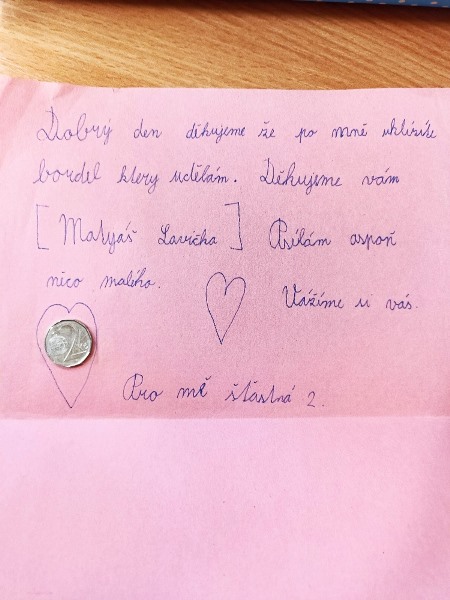 Dobrý den děkujeme že po mně uklízíte
bordel ktery udělám. Děkujeme vám
[Matyáš Lavička] Psílám aspoň
nico malího.
Vážíme si vás.
Pro mě štastná 2.